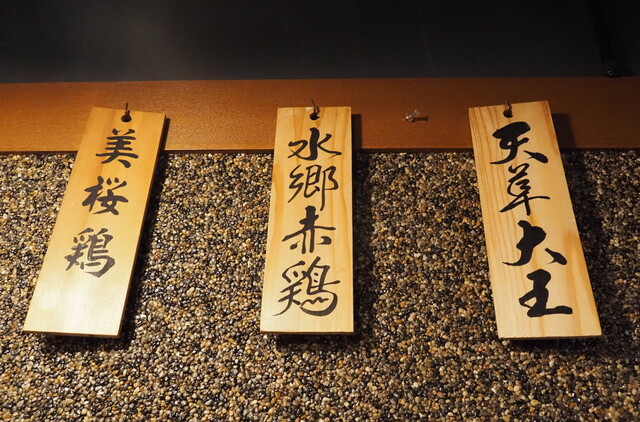 美桜鶏
水郷赤鶏
天草大王